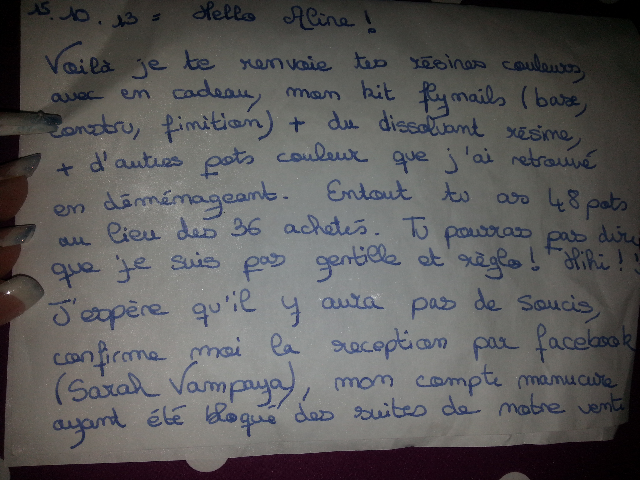 15.10.13 = Hello Aline !
Voilà je te renvoie tes résines couleurs,
avec en cadeau, mon kit flynails (base,
constru, finition) + du dissolvant résine,
+ d'autres pots couleur que j'ai retrouvé
en déménageant. Entout tu as 48 pots
au lieu des 36 achetés. Tu pourras pas dire
que je suis pas gentille et réglo ! Hihi !!
J'espère qu'il y aura pas de soucis,
confirme moi la reception par facebook
(Sarah Vampaya), mon compte manucure
ayant été bloqué des suites de notre vente